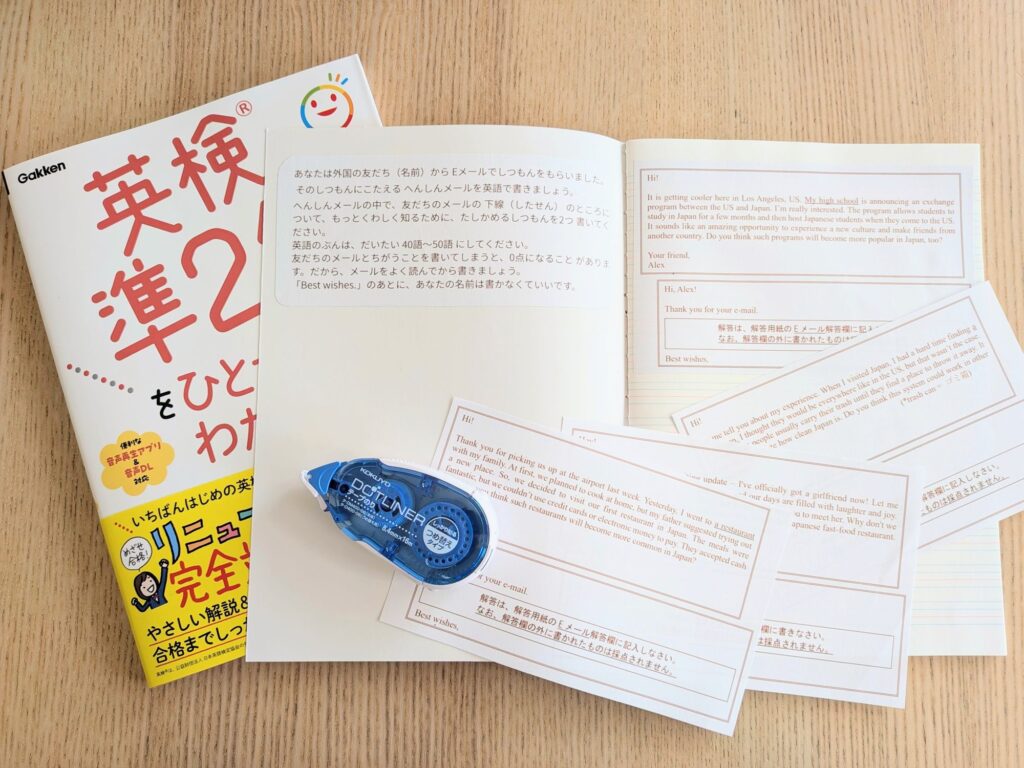 Gakken
英検®
準2
を
ひと
わか
便利な
音声再生アプリ
&
音声DL
対応
いちばんはじめの英検
めざせ
合格!
リニュー
完全
やさしい解説&
合格までしっか
あなたは外国の友だち(名前)から Eメールでしつもんをもらいました。
そのしつもんにこたえる へんしんメールを英語で書きましょう。
へんしんメールの中で、友だちのメールの 下線(したせん) のところに
ついて、もっとくわしく知るために、たしかめるしつもんを2つ 書いてく
ださい。
英語のぶんは、だいたい 40語~50語 にしてください。
友だちのメールとちがうことを書いてしまうと、0点になること がありま
す。だから、メールをよく読んでから書きましょう。
「Best wishes.」のあとに、あなたの名前は書かなくていいです。
Hi!
It is getting cooler here in Los Angeles, US. My high school is announcing an exchange
program between the US and Japan. I'm really interested. The program allows students to
study in Japan for a few months and then host Japanese students when they come to the US.
It sounds like an amazing opportunity to experience a new culture and make friends from
another country. Do you think such programs will become more popular in Japan, too?
Your friend,
Alex
Hi, Alex!
Thank you for your e-mail.
解答は、解答用紙のEメール解答欄に記入
なお、解答欄の外に書かれたものは採
Best wishes,
me tell you about my experience. When I visited Japan, I had a hard time finding a
I thought they would be everywhere like in the US, but that wasn't the case
people usually carry their trash until they find a place to throw it away. It
how clean Japan is. Do you think this system could work in other
(*trash can = ゴミ箱)
に記入しなさい。
は採点されません。
update – I've officially got a girlfriend now! Let me
our days are filled with laughter and joy
to meet her. Why don't we
apanese fast-food restaurant.
欄に書きなさい。
は採点されません。
Hi!
Thank you for picking us up at the airport last week. Yesterday, I went to a restaurant
with my family. At first, we planned to cook at home, but my father suggested trying out
a new place. So, we decided to visit our first restaurant in Japan. The meals were
fantastic, but we couldn't use credit cards or electronic money to pay. They accepted cash
you think such restaurants will become more common in Japan?
for your e-mail.
解答は、解答用紙のEメール解答欄に記入しなさい。
なお、解答欄の外に書かれたものは採点されません。
Best wishes,
KOKUYO
DOTLINER
テープのり
しっかり
つめ替え
タイプ
8.4mm×16m